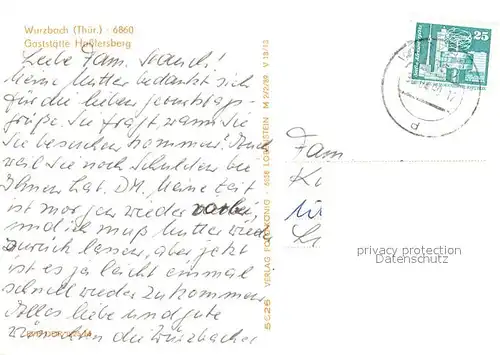 Wurzbach (Thür.) · 6860
Gaststätte Haßlersberg
Liebe Fam.
Meine Mutter bedankt sich
für die lieben Geburtstags-
grüße. Sie fragt, wann Sie
sie besuchen kommen? Auch
weil sie noch Schulden bei
Ihnen hat. DM. Meine Zeit
ist morgen wieder vorbei,
und ich muß Mutter wied
zurück lassen, aber jetzt
ist es ja leicht einmal
schnell wieder zu kommen.
Alles liebe und gute
wünschen die Wurzbacher
VERLAG 6858 LOBENSTEIN M 2/2/89 V 13/13
5626
25
Fam.
privacy protection
Datenschutz